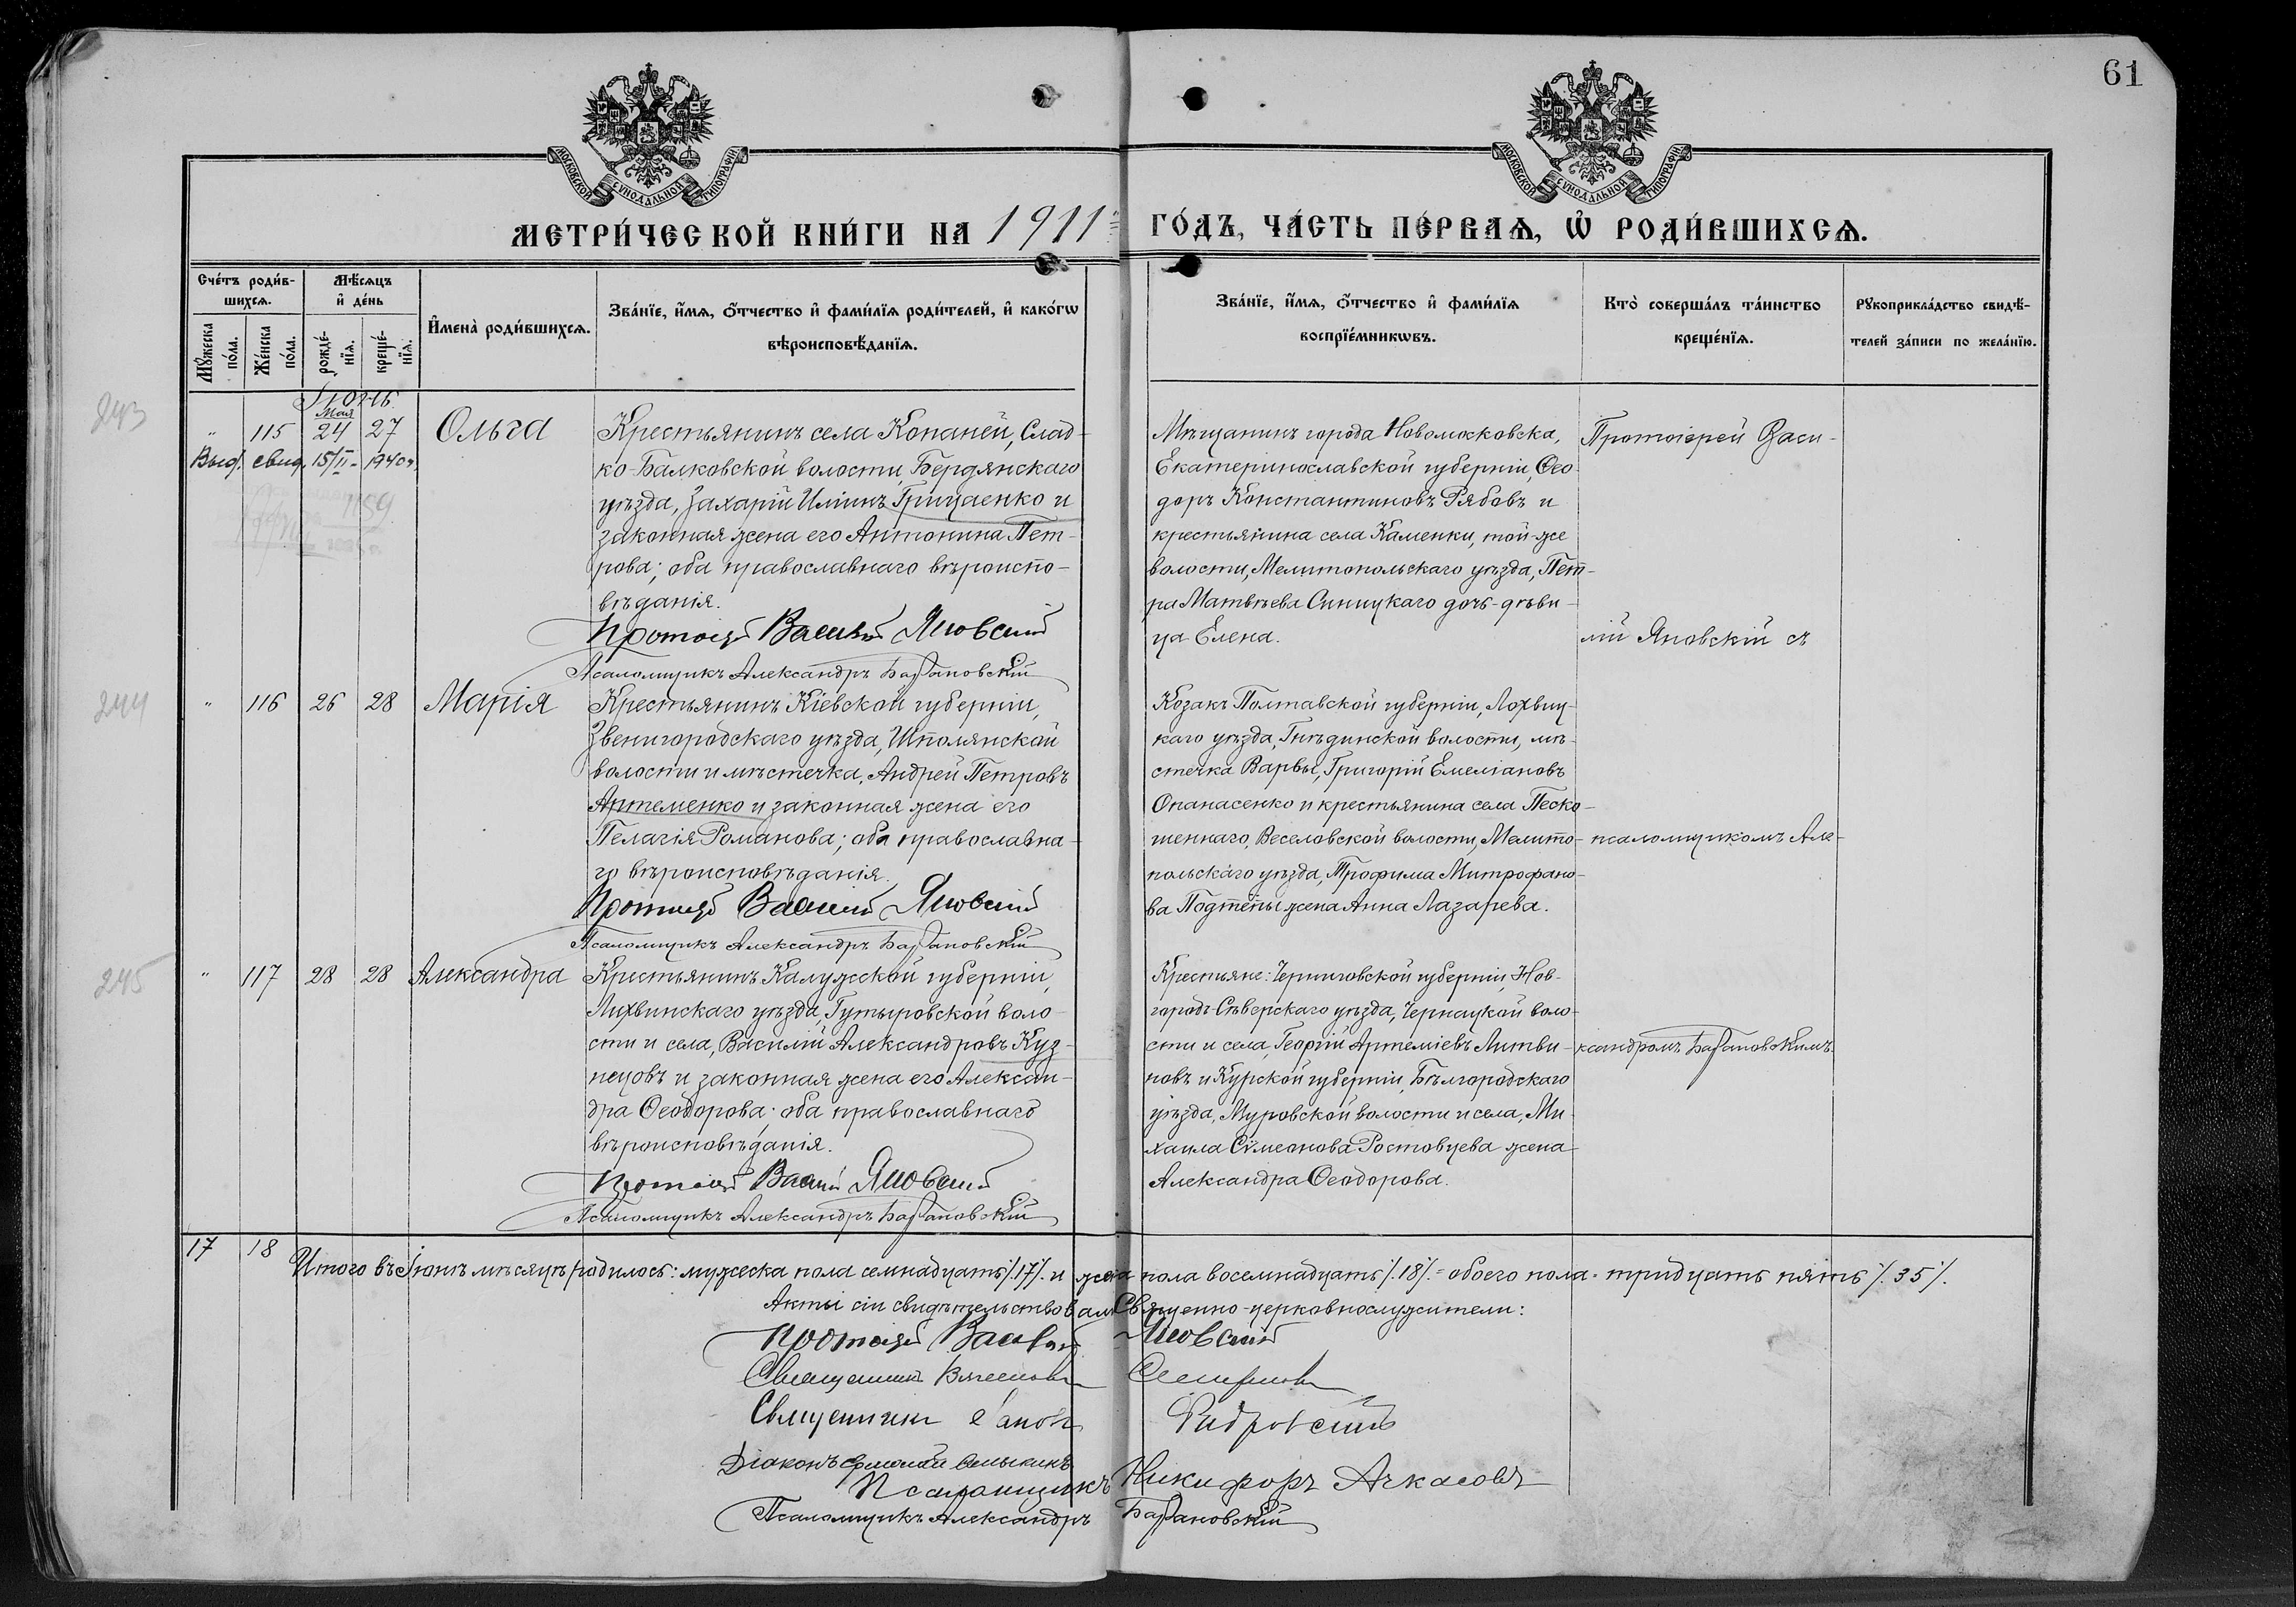 61
МОСКОВСКОЙ СѴНОДАЛЬНОЙ ТИПОГРАФІИ
МОСКОВСКОЙ СѴНОДАЛЬНОЙ ТИПОГРАФІИ
МЕТРИ́ЧЕСКОЙ КНИ́ГИ НА 1911 ГО́ДЪ, ЧА́СТЬ ПЕ́РВАѦ, Ѡ҆ РОДИ́ВШИХСѦ.
Сче́тъ роди́в-
шихсѧ.
Мꙋ́жеска
по́ла.
Же́нска
по́ла.
Мѣ́сѧцъ
и҆ де́нь
рожде́-
нїѧ.
креще́-
нїѧ.
И҆мена̀ роди́вшихсѧ.
Зва́нїе, и҆́мѧ, ѻ҆́тчество и҆ фами́лїѧ роди́телей, и҆ како́гѡ
вѣроисповѣ́данїѧ.
Зва́нїе, и҆́мѧ, ѻ҆́тчество и҆ фами́лїѧ
воспрїе́мникѡвъ.
Кто̀ соверша́лъ та́инство
креще́нїѧ.
Рꙋкоприкла́дство свидѣ́-
телей за́писи по жела́нїю.
Іюнь
Мая
243
" 115 24 27 Ольга
Выд. свид. 15/II-1940г.
1159
Крестьянинъ села Копаней, Слад-
ко-Балковской волости, Бердянскаго
уѣзда, Захарій Иліинъ Грицаенко и
законная жена его Антонина Пет-
рова; оба православнаго вѣроиспо-
вѣданія.
Протоіерей Василій Яновскій
Псаломщикъ Александръ Барановскій
Мѣщанинъ города Новомосковска,
Екатеринославской губерніи, Ѳео-
доръ Константиновъ Рябовъ и
крестьянина села Каменки, той-же
волости, Мелитопольскаго уѣзда, Пет-
ра Матвѣева Синицкаго дочь-дѣви-
ца Елена.
Протоіерей Васи-
лій Яновскій съ
244
" 116 26 28 Марія
Крестьянинъ Кіевской губерніи,
Звенигородскаго уѣзда, Шполянской
волости и мѣстечка, Андрей Петровъ
Артеменко и законная жена его
Пелагія Романова; оба православна-
го вѣроисповѣданія.
Протоіерей Василій Яновскій
Псаломщикъ Александръ Барановскій
Козакъ Полтавской губерніи, Лохвиц-
каго уѣзда, Гнѣдинской волости, мѣ-
стечка Варвы, Григорій Емеліановъ
Опанасенко и крестьянина села Песко-
шеннаго, Веселовской волости, Мелито-
польскаго уѣзда, Трофима Митрофано-
ва Подтепы жена Анна Лазарева.
псаломщикомъ Але-
245
" 117 28 28 Александра
Крестьянинъ Калужской губерніи,
Лихвинскаго уѣзда, Гутыровской воло-
сти и села, Василій Александровъ Куз-
нецовъ и законная жена его Алексан-
дра Ѳеодорова; оба православнаго
вѣроисповѣданія.
Протоіерей Василій Яновскій
Псаломщикъ Александръ Барановскій
Крестьяне: Черниговской губерніи, Нов-
городъ-Сѣверскаго уѣзда, Чернацкой воло-
сти и села, Георгій Артеміевъ Литви-
новъ и Курской губерніи, Бѣлгородскаго
уѣзда, Муровской волости и села, Ми-
хаила Сѵмеонова Ростовцева жена
Александра Ѳеодорова.
ксандромъ Барановскимъ.
17 18
Итого въ Іюнѣ мѣсяцѣ родилось: мужеска пола семнадцать ./.17./. и жен. пола восемнадцать ./.18./. = обоего пола - тридцать пять ./.35./.
Акты сіи свидѣтельствовали Священно-церковнослужители:
Протоіерей Василій Яновскій
Священникъ
Священникъ
Діаконъ
Псаломщикъ Никифоръ Ачкасовъ
Псаломщикъ Александръ Барановскій